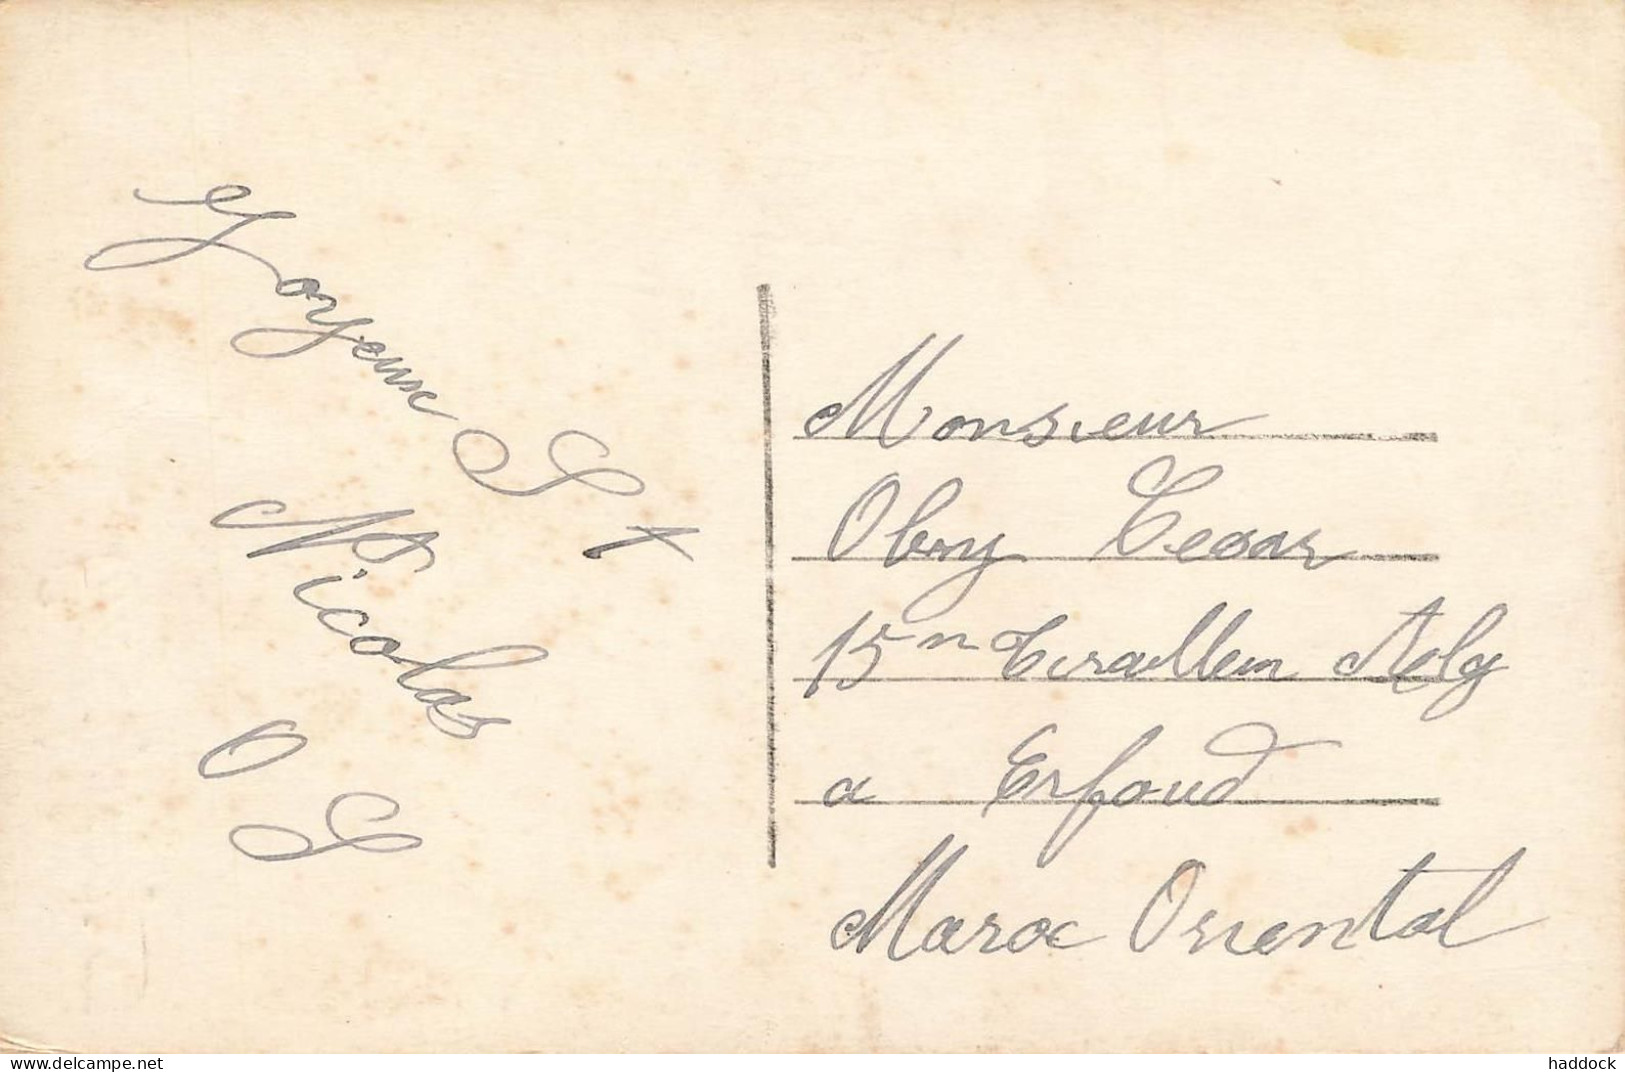 Joyeux St
Nicolas
O S
Monsieur
Obry Cesar
15m Tirailleur Alg
a Erfoud
Maroc Oriental
www.delcampe.net
haddock